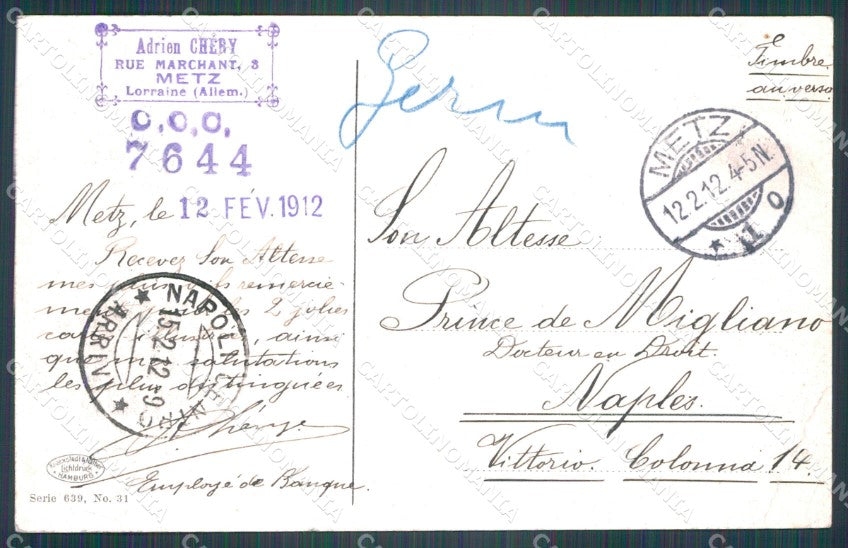 Adrien CHÉRY
RUE MARCHANT, 3
METZ
Lorraine (Allem.)
C.C.C.
7644
Metz, le 12 FÉV. 1912
Recevez Son Altesse
mes plus vifs remercie-
ments les 2 jolies
ainsi
que mes salutations
les plus distinguées
Employé de Banque.
HAMBURG
Serie 639, No. 31
NAPOLI
ARRIVI
15.2.12
Timbre
au verso
METZ
12.2.12.4-5N.
Son Altesse
Prince de Migliano
Docteur en Droit.
Naples.
Vittorio. Colonna 14.
CARTOLINOMANIA